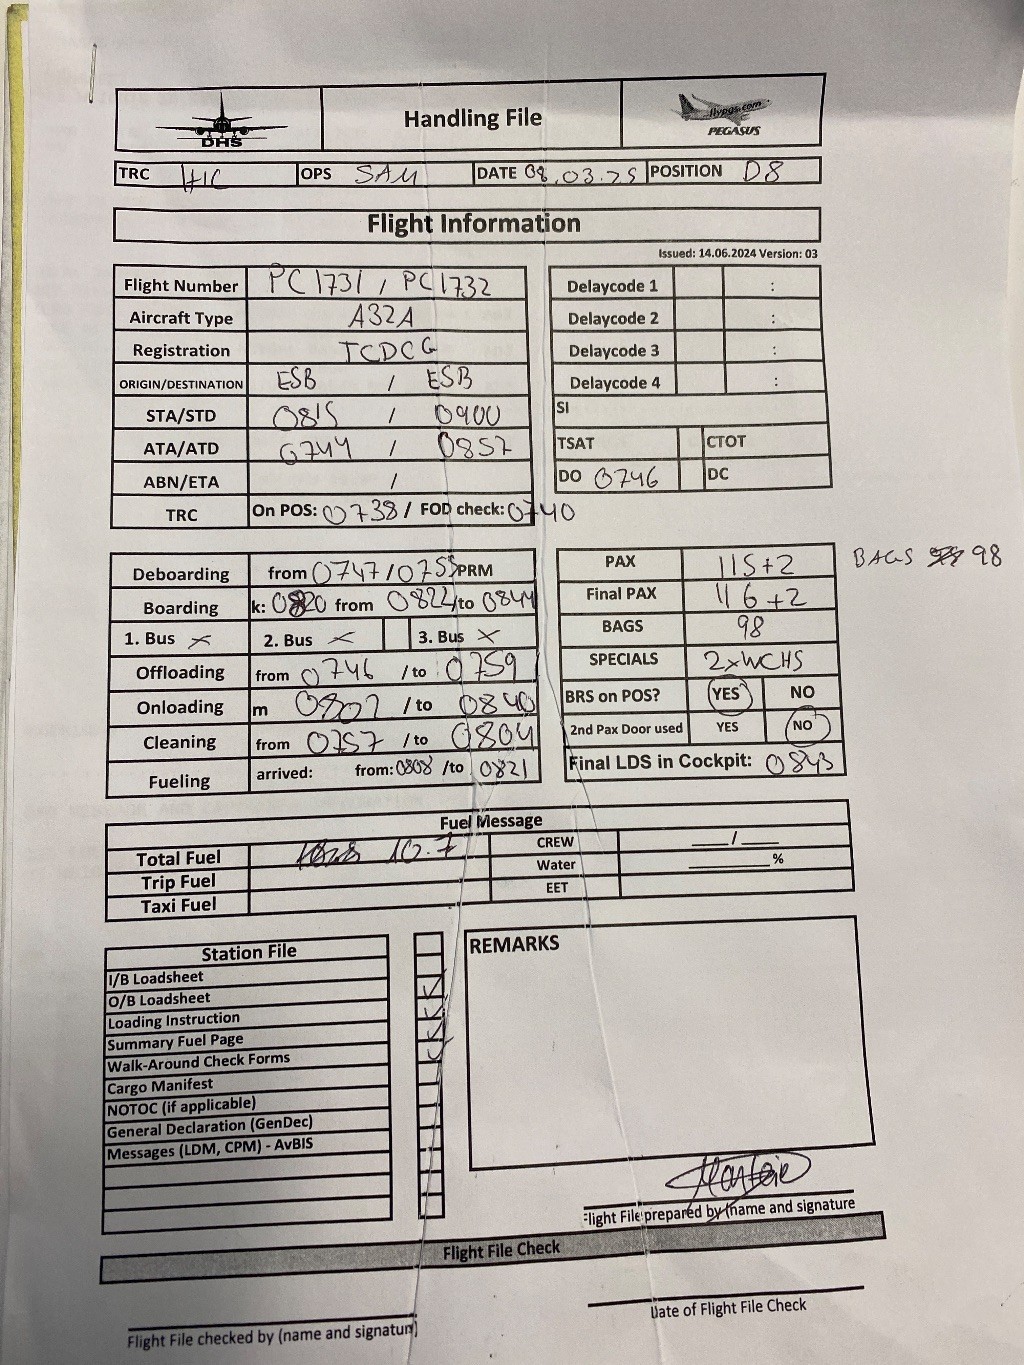 DHS
Handling File
flypgs.com
PEGASUS
TRC HIC OPS SAM DATE 08.03.25 POSITION D8
Flight Information
Issued: 14.06.2024 Version: 03
Flight Number PC1731 / PC1732
Aircraft Type A32A
Registration TCDCG
ORIGIN/DESTINATION ESB / ESB
STA/STD 0815 / 0900
ATA/ATD 0744 / 0857
ABN/ETA /
TRC On POS: 0738 / FOD check: 0740
Delaycode 1 :
Delaycode 2 :
Delaycode 3 :
Delaycode 4 :
SI
TSAT CTOT
DO 0746 DC
Deboarding from 0747/0755 PRM
Boarding k: 0820 from 0822/to 0844
1. Bus x 2. Bus x 3. Bus x
Offloading from 0746 /to 0759
Onloading m 0807 /to 0840
Cleaning from 0757 /to 0804
Fueling arrived: from: 0808 /to 0821
PAX 115+2 BAGS 98
Final PAX 116+2
BAGS 98
SPECIALS 2xWCHS
BRS on POS? YES NO
2nd Pax Door used YES NO
Final LDS in Cockpit: 0843
Fuel Message
Total Fuel 10.7 CREW ___/___
Trip Fuel Water ______%
Taxi Fuel EET
Station File
I/B Loadsheet
O/B Loadsheet
Loading Instruction
Summary Fuel Page
Walk-Around Check Forms
Cargo Manifest
NOTOC (if applicable)
General Declaration (GenDec)
Messages (LDM, CPM) - AvBIS
REMARKS
Flight File prepared by (name and signature
Flight File Check
Flight File checked by (name and signature)
Date of Flight File Check